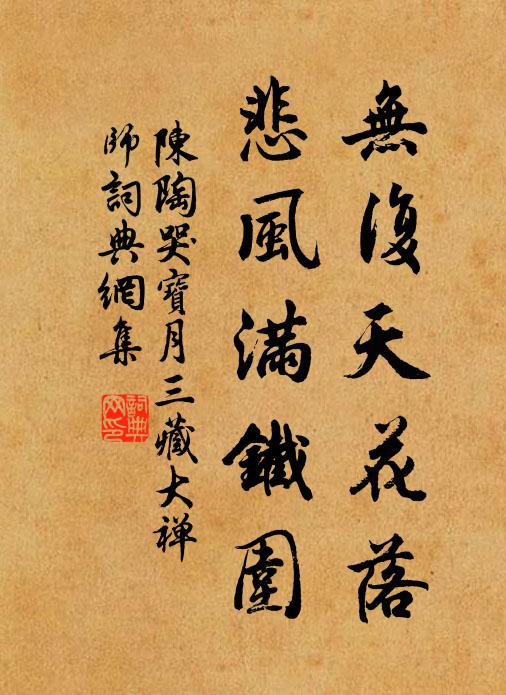 無復天花落
悲風滿鐵圍
陳陶哭寶月三藏大禅
師詞典網集
詞典
网印